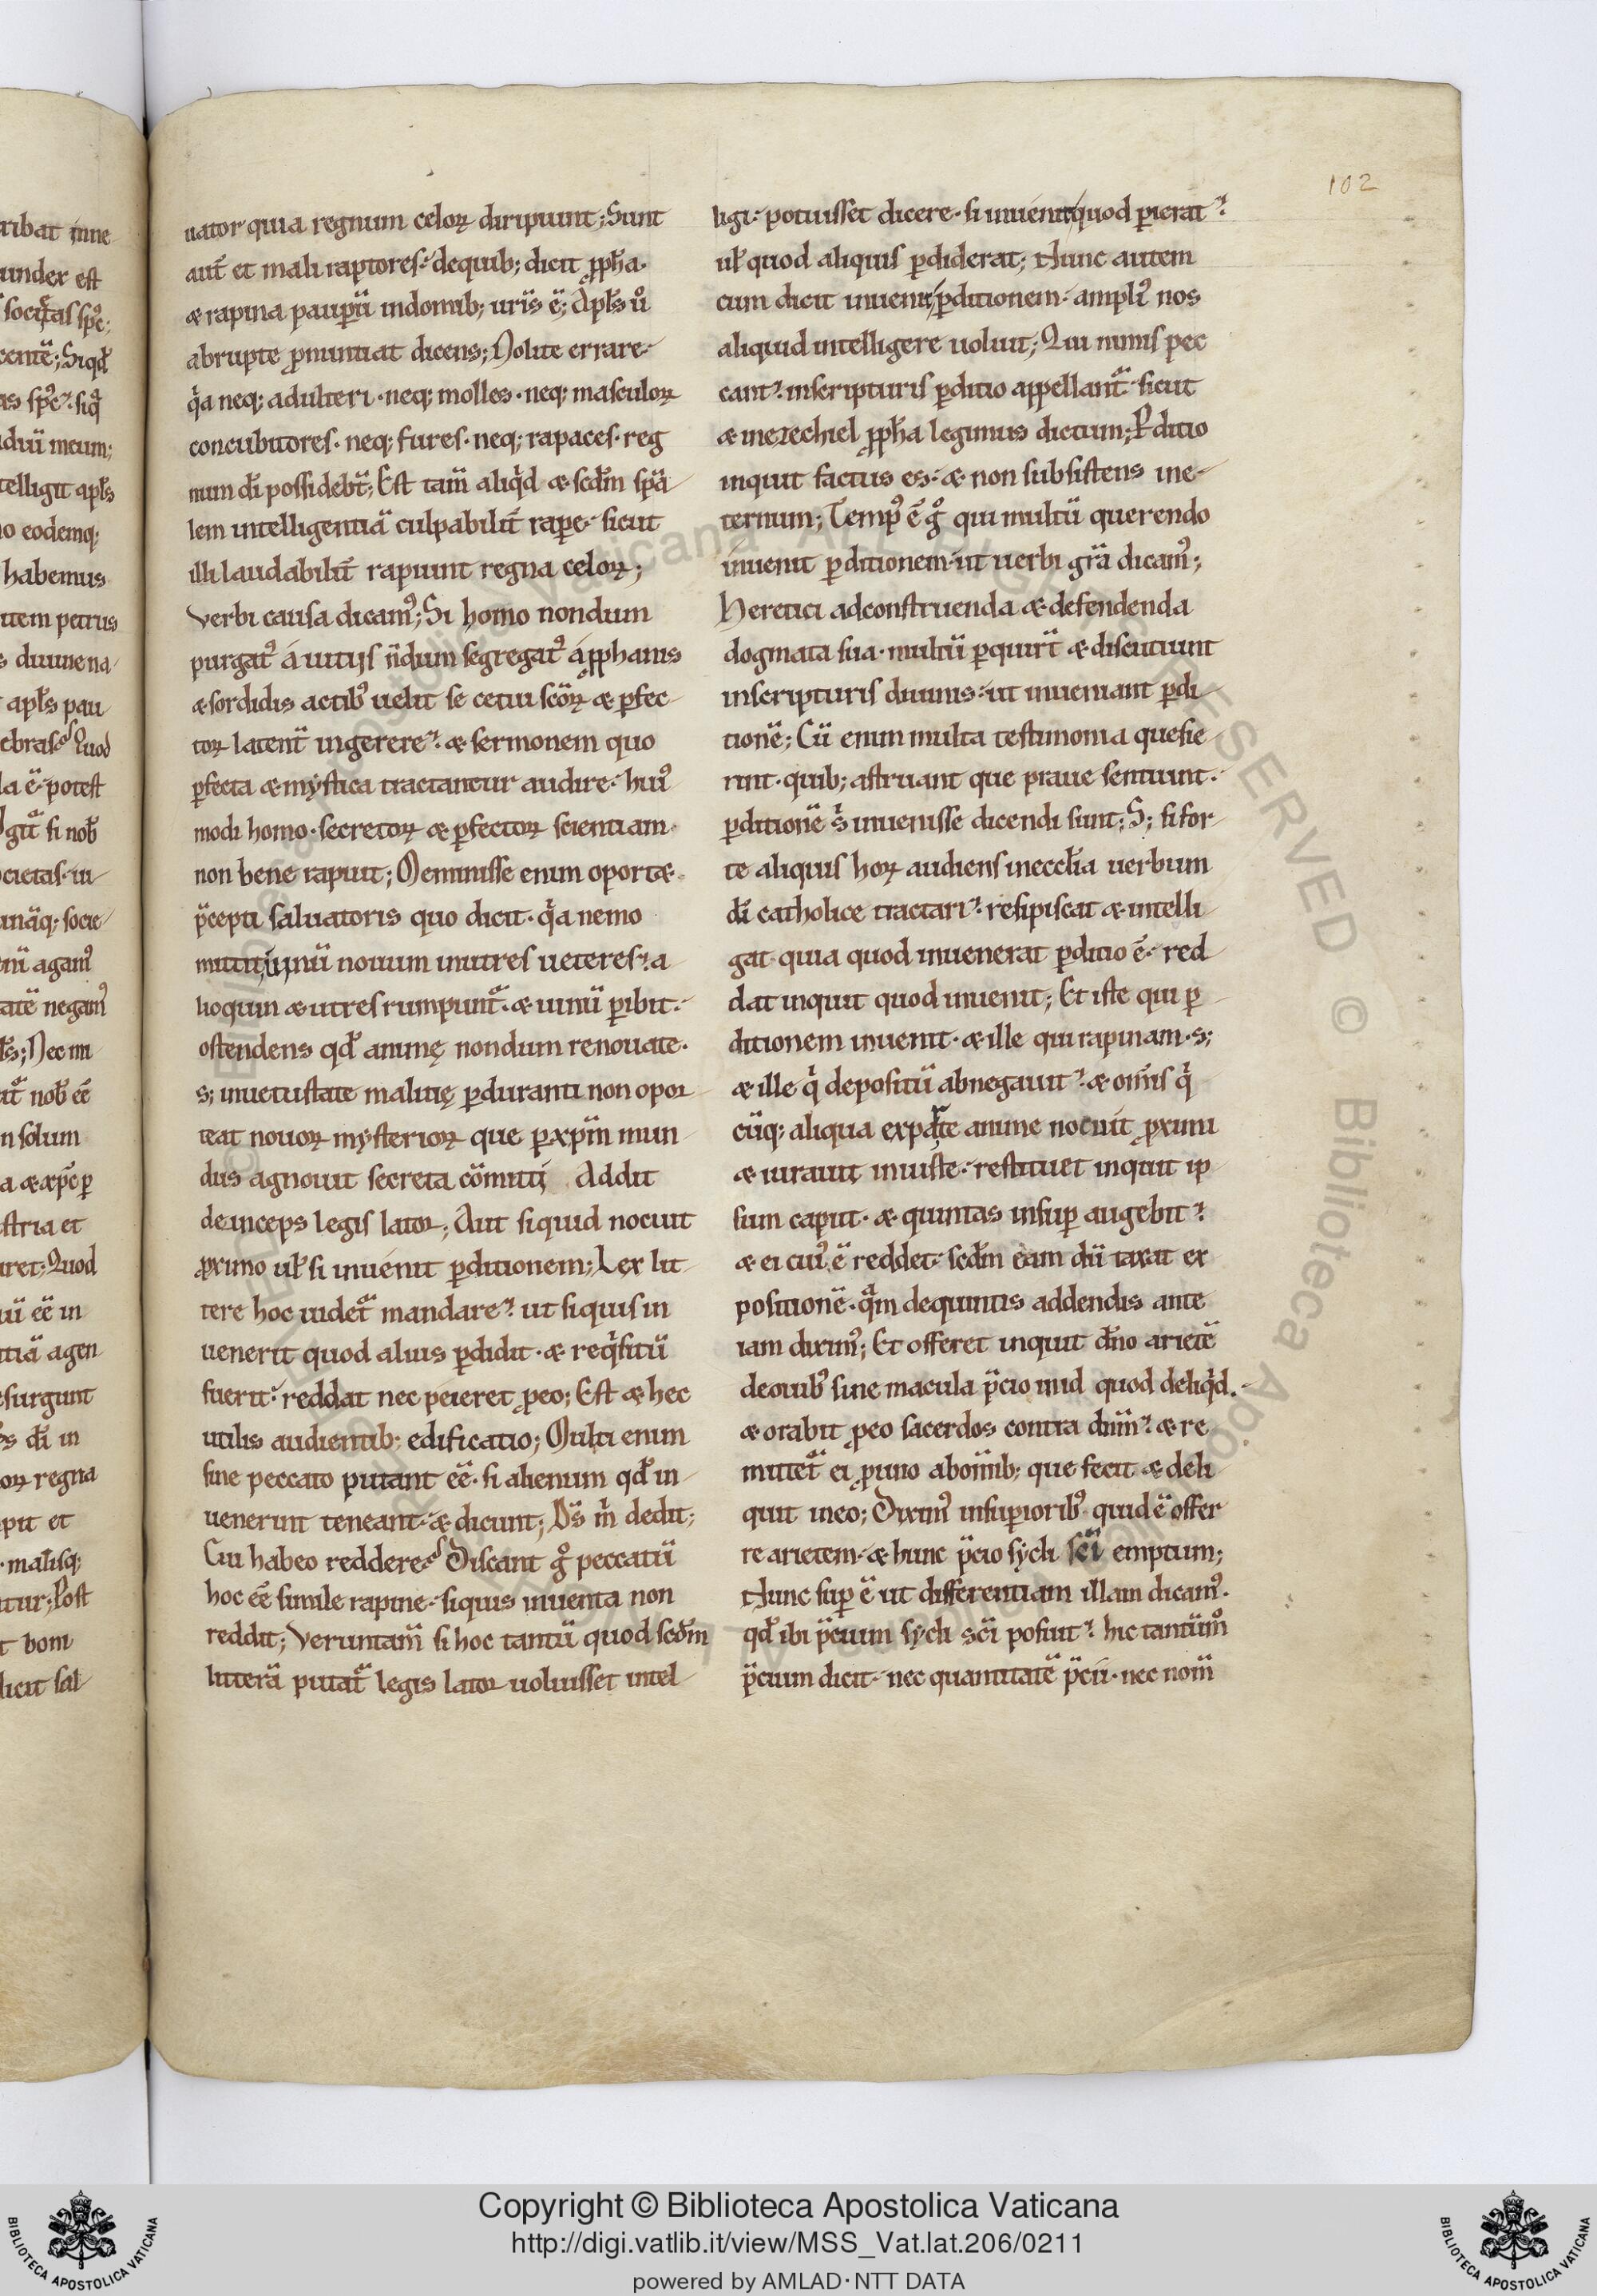 102
uator quia regnum celoꝝ diripiunt; Sunt
aut̄ et mali raptores dequib; dicit ꝓph̄a.
æ rapina pauꝑū indomib; ur̄is ē; Apl̄s u͛o
abrupte ꝓnuntiat dicens; Nolite errare
qͥa neq; adulteri · neq; molles · neq; masculoꝝ
concubitores · neq; fures · neq; rapaces · reg
num dī possidebt̄; Est tam̄ aliqͥd æ scd̄m sp̄a
lem intelligentiā culpabilit̄ raꝑe sicut
illi laudabilit̄ rapiunt regna celoꝝ;
Verbi causa dicam᾽; Si homo nondum
purgat᾽ á uitijs n̄dum segregat᾽ á ꝓphanis
æ sordidis actib᾽ uelit se cetui sc̄oꝝ æ ꝑfec
toꝝ latent̄ ingerere æ sermonem quo
ꝑfecta æ mystica tractantur audire hui᾽
modi homo · secretoꝝ æ ꝑfectoꝝ scientiam
non bene rapuit; Meminisse enim oportæ
p̄cepti saluatoris quo dicit · qͥa nemo
mittit uinū nouum inutres ueteres a
lioquin æ utres rumpunt᷑ · æ uinū ꝑibit
ostendens qd̄ animę nondum renouate ·
s; inuetustate malitię ꝑduranti non opor
teat nouoꝝ mysterioꝝ que ꝑ xp̄m mun
dus agnouit secreta cōmitti Addit
deinceps legis lator; Aut siquid nocuit
ꝓximo ul̄ si inuénit ꝑditionem; Lex lit
tere hoc uidet᷑ mandare ut siquis in
uenerit quod alius ꝑdidit · æ reqͥsitū
fuerit reddat nec peieret ꝓeo; Est æ hec
utilis audientib; edificatio; Multi enim
sine peccato putant eē · si alienum qd̄ in
uenerint teneant · æ dicunt; Ds̄ mͥ dedit;
Cui habeo reddere Discant gͦ peccatū
hoc eē simile rapine · siquis inuenta non
reddit; Veruntam̄ si hoc tantū quod scd̄m
litterā putat᷑ legis lator uoluisset intel
ligi potuisset dicere · si inuénit quod ꝑierat
ul̄ quod aliquis ꝑdiderat; Nunc autem
cum dicit inuenit ꝑditionem ampli᾽ nos
aliquid intelligere uoluit; Qui nimis pec
cant inscripturis ꝑditio appellant᷑ sicut
æ inezechiel ꝓph̄a legimus dictum; Ꝑditio
inquit factus es æ non subsistens ine
ternum; Temp᾽ ē gͦ qui multū querendo
inuenit ꝑditionem ut uerbi gr̄a dicam᾽;
Heretici adconstruenda æ defendenda
dogmata sua · multū ꝑquirt̄ æ discutiunt
inscripturis diuinis ut inueniant ꝑdi
tionē; Cū enim multa testimonia quesie
rint · quib; astruant que praue sentiunt ·
ꝑditionē sͥ inuenisse dicendi sunt; S; si for
te aliquis hoꝝ audiens ineccl̄ia uerbum
dī catholice tractari resipiscat æ intelli
gat quia quod inuenerat ꝑditio ē · red
dat inquit quod inuenit; Et iste qui ꝑ
ditionem inuenit · æ ille qui rapinam · s;
æ ille qͥ depositū abnegauit æ om̄is qͥ
cūq; aliqua ex parte anime nocuit ꝓximi
æ iurauit iniuste restituet inquit ip
sum caput · æ quintas insuꝑ augebit
æ ei cui᾽ ē reddet scd̄m eam dū taxat ex
positionē · qᷓm dequintis addendis ante
iam dixim᾽; Et offeret inquit dn̄o arietē
deouib᾽ sine macula p̄cio inid quod deliqͥd.
æ orabit ꝓeo sacerdos contra dn̄m æ re
mittet᷑ ei ꝓ uno abom̄ib; que fecit æ deli
quit ineo; Dixim᾽ insuꝑiorib᾽ quid ē offer
re arietem · æ hunc p̄cio sycli sc̄i emptum;
Nunc suꝑ ē ut differentiam illam dicam᾽ ·
qd̄ ibi p̄cium sycli sc̄i posuit hic tantūmͦ
p̄cium dicit nec quantitatē p̄cii · nec nom̄
Copyright © Biblioteca Apostolica Vaticana
http://digi.vatlib.it/view/MSS_Vat.lat.206/0211
powered by AMLAD·NTT DATA
BIBLIOTECA APOSTOLICA VATICANA
BIBLIOTECA APOSTOLICA VATICANA